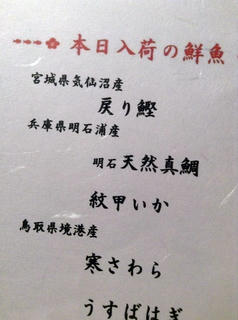 本日入荷の鮮魚
宮城県気仙沼産
戻り鰹
兵庫県明石浦産
明石 天然真鯛
紋甲いか
鳥取県境港産
寒さわら
うすばはぎ